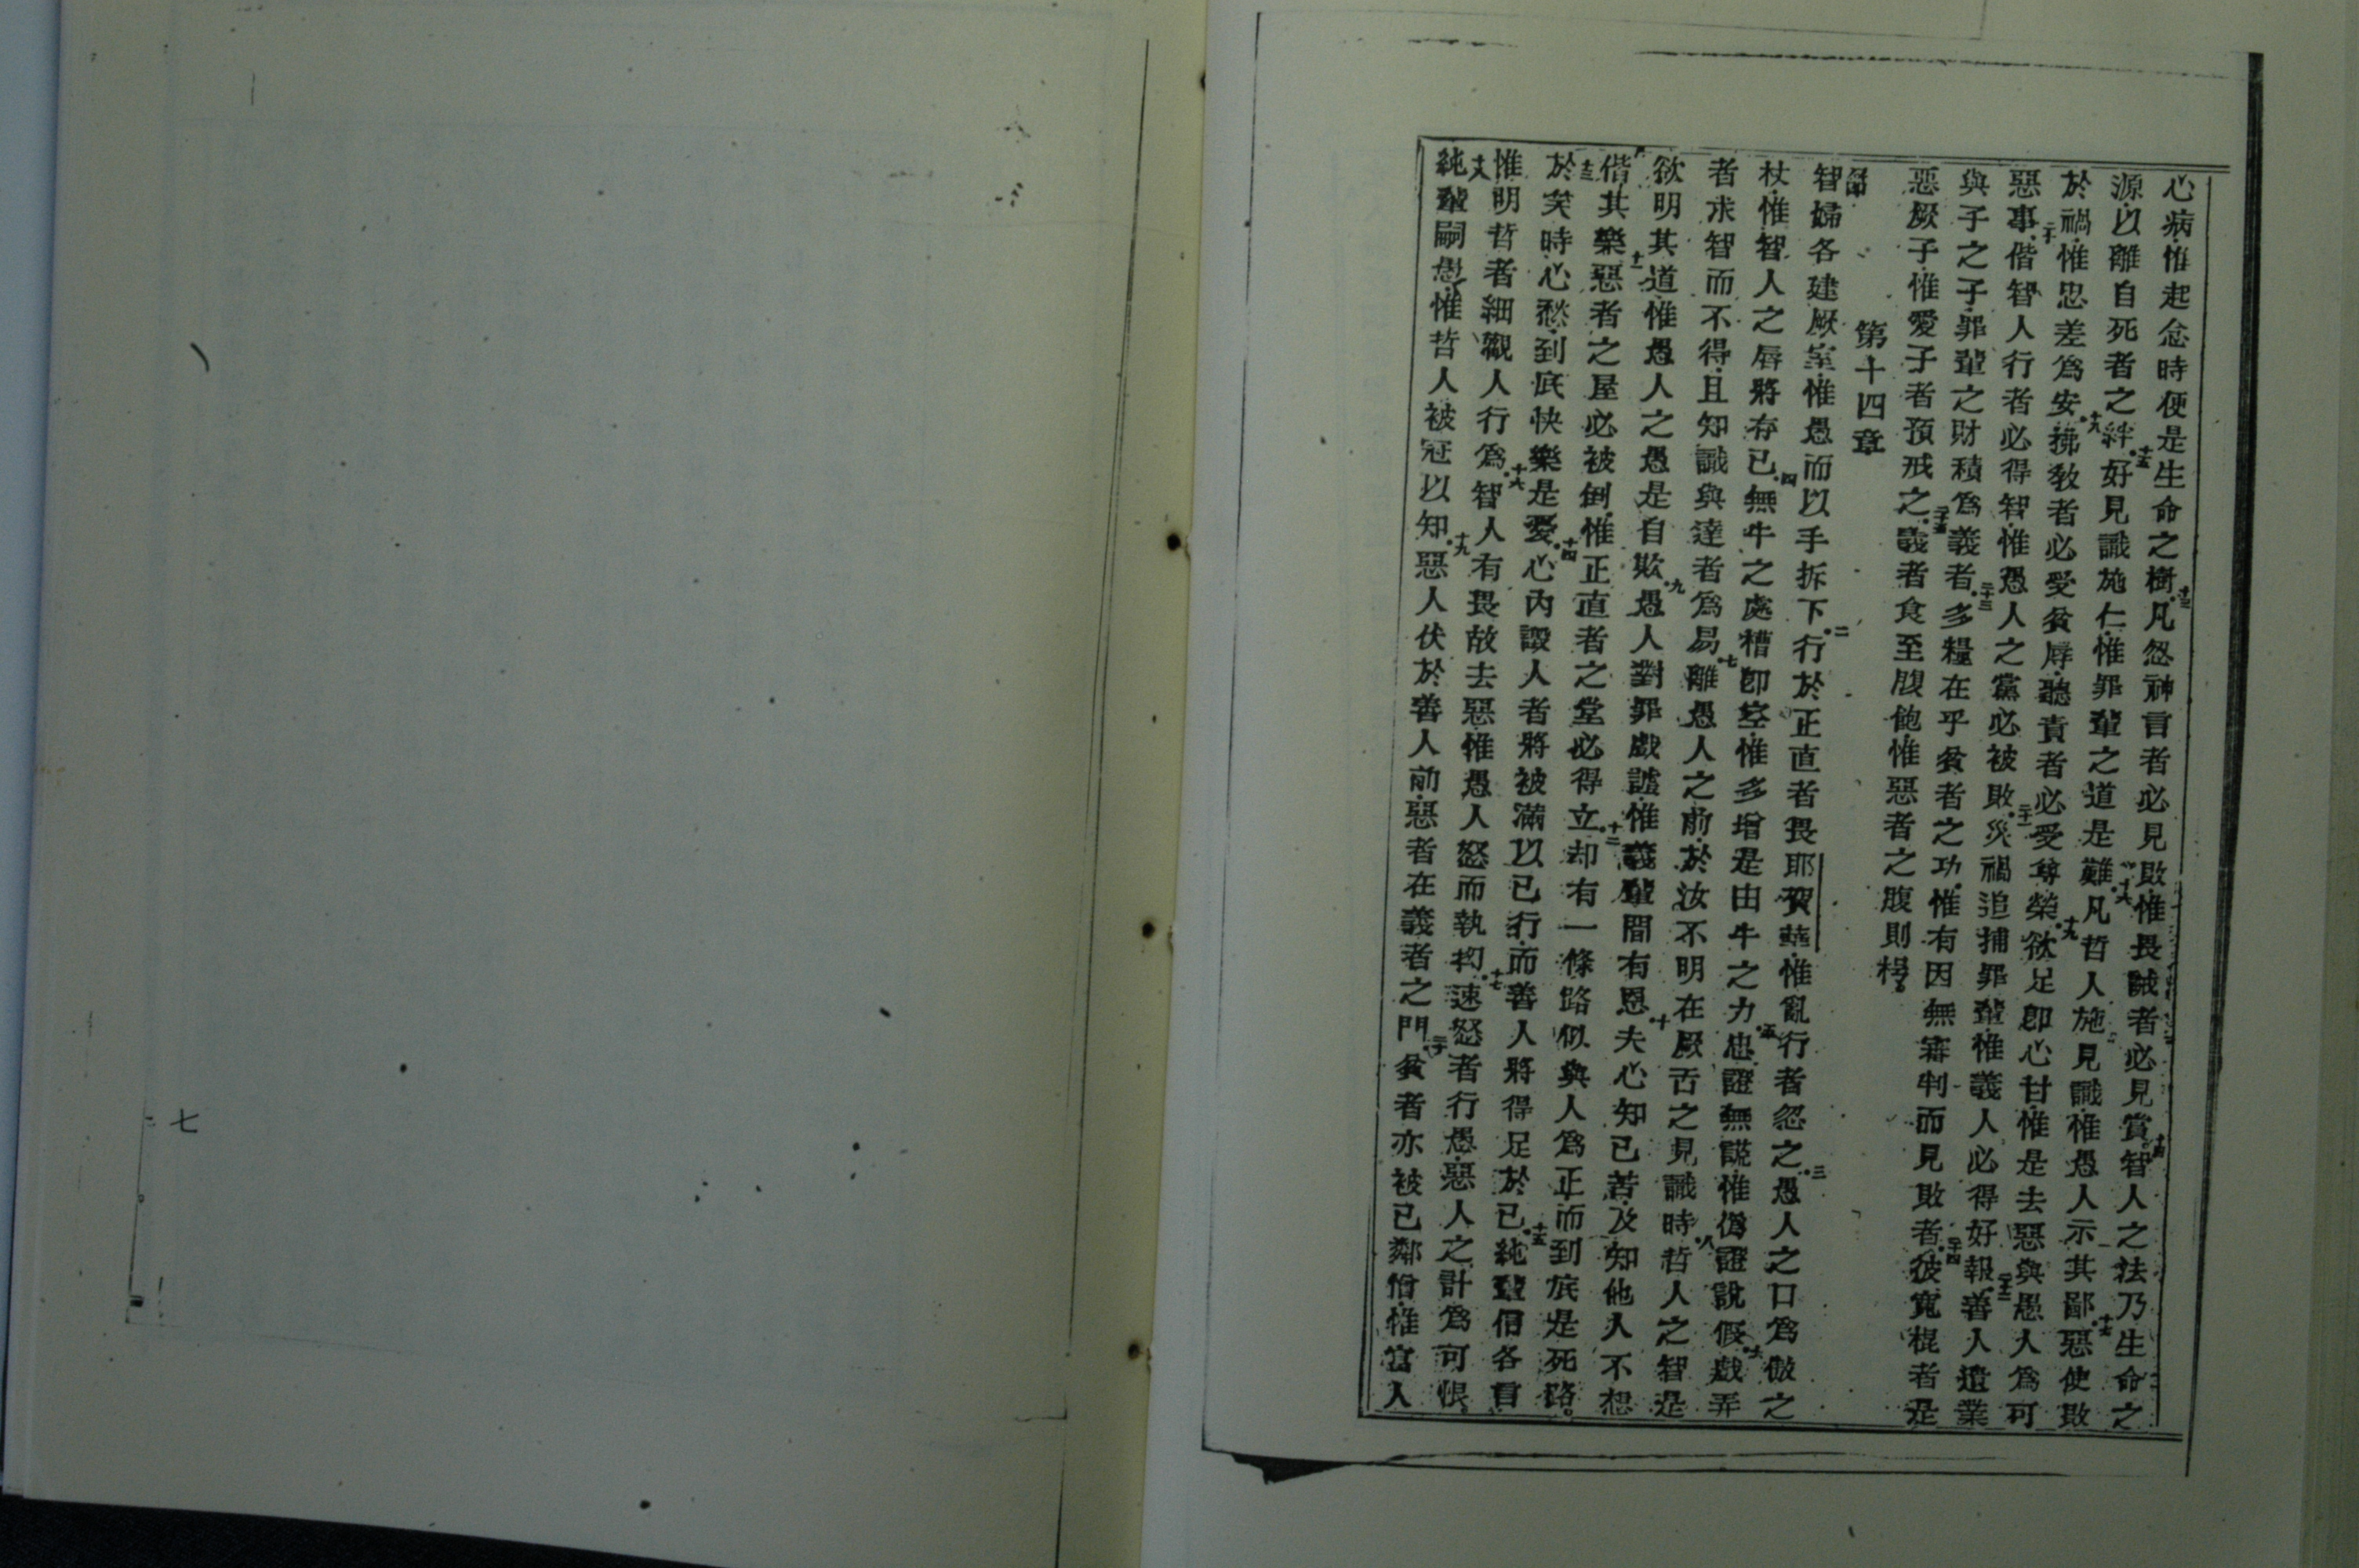 心病惟起念時便是生命之樹凡忽神言者必見敗惟畏誡者必見賞智人之法乃生命之
源以離自死者之絆好見識施仁惟罪輩之道是難凡哲人施見識惟愚人示其鄙惡使敗
於禍惟忠差爲安拂教者必受貧辱聽責者必受尊榮欲足卽心甘惟是去惡與愚人爲可
惡事偕智人行者必得智惟愚人之黨必被敗災禍追捕罪輩惟義人必得好報善人遺業
與子之子罪輩之財積爲義者多糧在乎貧者之功惟有因無審判而見敗者彼寬棍者是
惡厥子惟愛子者預戒之義者食至腹飽惟惡者之腹則
第十四章
智婦各建厥室惟愚而以手拆下行於正直者畏耶賀華惟亂行者忽之愚人之口爲傲之
杖惟智人之唇將存已無牛之處槽卽空惟多增是由牛之力忠證無謊惟僞證說假戲弄
者求智而不得且知識與達者爲易離愚人之前於汝不明在厥舌之見識時哲人之智是
欲明其道惟愚人之愚是自欺愚人對罪戲謔惟義輩間有恩夫心知已苦及知他人不想
偕其樂惡者之屋必被倒惟正直者之堂必得立却有一條路似與人爲正而到底是死路
於笑時心愁到底快樂是憂心內譭人者將被滿以已行而善人將得足於已純輩信各言
惟明哲者細觀人行爲智人有畏故去惡惟愚人怒而執拗速怒者行愚惡人之計爲可恨
純輩嗣愚惟哲人被冠以知惡人伏於善人前惡者在義者之門貧者亦被已鄰憎惟富人
七